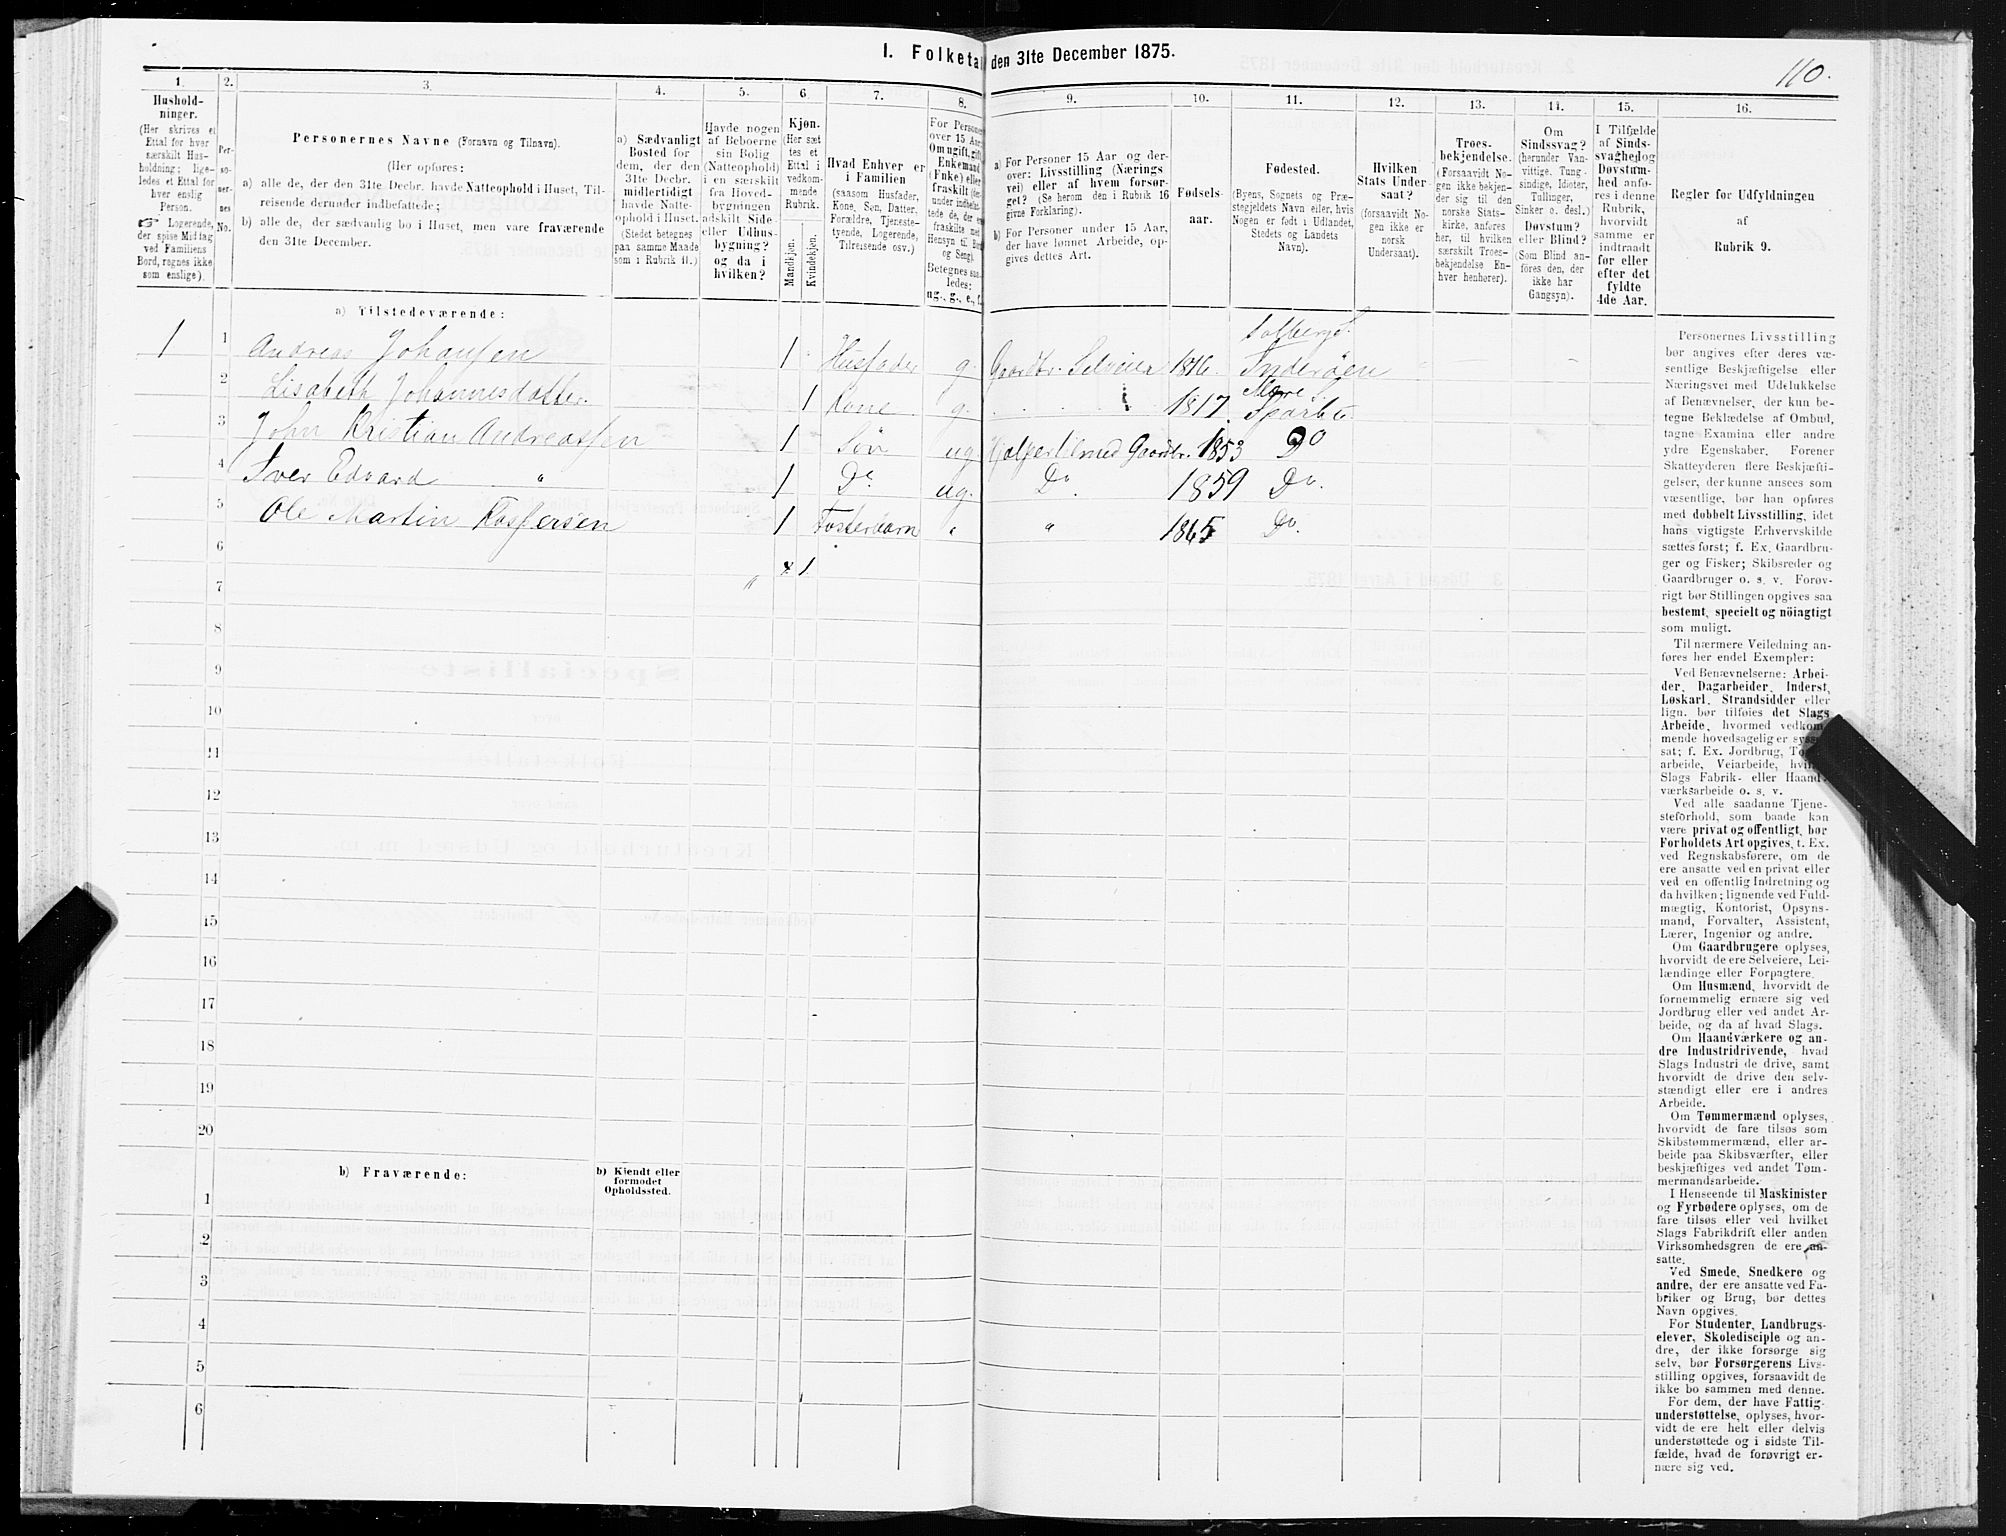 I. Folketal den 31te December 1875.
110.
1. 2. 3. 4. 5. 6. 7. 8. 9. 10. 11. 12. 13. 14. 15. 16.
Hushold-
ninger.
(Her skrives et
Ettal for hver
særskilt Hus-
holdning; lige-
ledes et Ettal for
hver enslig
Person.
☞ Logerende,
der spise Middag
ved Familiens
Bord, regnes ikke
som enslige).
Per-
so-
ner-
nes
No.
Personernes Navne (Fornavn og Tilnavn).
(Her opføres:
a) alle de, der den 31te Decbr. havde Natteophold i Huset, Til-
reisende derunder indbefattede;
b) alle de, der sædvanlig bo i Huset, men vare fraværende
den 31te December.
a) Sædvanligt
Bosted for
dem, der den
31te Decbr.
midlertidigt
havde Natte-
ophold i Huset.
(Stedet betegnes
paa samme Maade
som i Rubrik 11.)
Havde nogen
af Beboerne
sin Bolig
(Natteophold)
i en særskilt
fra Hoved-
bygningen
adskilt Side-
eller Udhus-
bygning?
og da i
hvilken?
Kjøn.
(Her sæt
tes et
Ettal i
vedkom-
mende
Rubrik.
Mandkjøn.
Kvindekjøn.
Hvad Enhver er
i Familien
(saasom Husfader,
Kone, Søn, Datter,
Forældre, Tjeneste-
tyende, Logerende,
Tilreisende osv.)
For Personer
over 15 Aar:
Om ugift, gift,
Enkemand
(Enke) eller
fraskilt
Hensyn til Bord
og Seng).
Betegnes saa-
ledes:
ug., g., e., f.
a) For Personer 15 Aar og der-
over: Livsstilling (Nærings
vei) eller af hvem forsør-
get? (Se herom den i Rubrik 16
givne Forklaring).
b) For Personer under 15 Aar,
der have lønnet Arbeide, op-
gives dettes Art.
Fødsels-
aar.
Fødested.
(Byens, Sognets og Præ-
stegjeldets Navn eller, hvis
Nogen er født i Udlandet,
Stedets og Landets
Navn).
Hvilken
Stats Under-
saat?
(forsaavidt No-
gen ikke er
norsk
Undersaat).
Troes-
bekjendelse.
(Forsaavidt No-
gen ikke bekjen-
der sig til den
norske Stats-
Kirke, anføres
her, til hvilken
særskilt Troes-
bekjendelse En-
hver henhører).
Om
Sindssvag?
(herunder Van-
vittige, Tung-
sindige, Idioter,
Tullinger,
Sinker o. desl.)
Døvstum?
eller Blind?
(Som Blind an-
føres den, der
ikke har
Gangsyn).
I Tilfælde
af Sinds-
svaghed og
Døvstum-
hed anfø-
res i denne
Rubrik,
hvorvidt
samme er
indtraadt
før eller
efter det
fyldte
4de Aar.
Regler for Udfyldningen
af
Rubrik 9.
a) Tilstedeværende:
Salberg S.
1 1 Andreas Johansen 1 Husfader g. Gaardbr. Selveier 1816. Inderöen
Mære S.
2 Lisabeth Johannesdatter. 1 Kone g. 1817 Sparbu.
3 John Kristian Andreassen 1 Søn ug. Hjælper til med Gaardbr. 1853 Do
4 Iver Edvard " 1 Do. ug. Do. 1859 Do.
5 Ole Martin Kaspersen 1 Fosterbarn " " 1865 Do.
6 " 4 1
7
8
9
10
11
12
13
14
15
16
17
18
19
20
b) Fraværende:
b) Kjendt eller
formodet
Opholdssted.
1
2
3
4
5
6
Personernes Livsstilling
bør angives efter deres væ-
sentlige Beskjæftigelse eller
Næringsvei med Udelukkelse
af Benævnelser, der kun be-
tegne Beklædelse af Ombud,
tagne Examina eller andre
ydre Egenskaber. Forener
Skatteyderen flere Beskjæfti-
gelser, der kunne ansees som
væsentlige, bør han opføres
med dobbelt Livsstilling, idet
hans vigtigste Erhvervskilde
sættes først; f. Ex. Gaardbru-
ger og Fisker; Skibsreder og
Gaardbruger o. s. v. Forøv-
rigt bør Stillingen opgives saa
bestemt, specielt og nöiagtigt
som muligt.
Til nærmere Veiledning an-
føres her endel Exempler:
Ved Benævnelserne: Arbei-
der, Dagarbeider, Inderst,
Løskarl, Strandsidder eller
lign. bør tilføies det Slags
Arbeide, hvormed vedkom-
mende hovedsagelig er syssel-
sat; f. Ex. Jordbrug, Tomte-
arbeide, Veiarbeide, hvilket
Slags Fabrik- eller Haand-
værksarbeide o. s. v.
Ved alle saadanne Tjene-
steforhold, som baade kan
være privat og offentligt, bør
Forholdets Art opgives, t. Ex.
ved Regnskabsførere, om de
ere ansatte ved en privat eller
ved en offentlig Indretning og
da hvilken; lignende ved Fuld-
mægtig, Kontorist, Opsyns-
mand, Forvalter, Assistent,
Lærer, Ingeniør og andre.
Om Gaardbrugere oplyses,
hvorvidt de ere Selveiere, Lei-
lændinge eller Forpagtere.
Om Husmænd, hvorvidt de
fornemmelig ernære sig ved
Jordbrug eller ved andet Ar-
beide, og da af hvad Slags.
Om Haandværkere og an-
dre Industridrivende, hvad
Slags Industri de drive, samt
hvorvidt de drive den selv-
stændigt eller ere i andres
Arbeide.
Om Tømmermænd oplyses,
hvorvidt de fare tilsøs som
Skibstømmermænd, eller ar-
beide paa Skibsværfter, eller
beskjæftiges ved andet Tøm-
mermandsarbeide.
I Henseende til Maskinister
og Fyrbødere oplyses, om de
fare tilsøs eller ved hvilket
Slags Fabrikdrift eller anden
Virksomhedsgren de ere an-
satte.
Ved Smede, Snedkere og
andre, der ere ansatte ved Fa-
briker og Brug, bør dettes
Navn opgives.
For Studenter, Landbrugs-
elever, Skoledisciple og an-
dre, der ikke forsørge sig
selv, bør Forsørgerens Livs-
stilling opgives, forsaavidt de
ikke bo sammen med denne.
For dem, der have Fattig-
understøttelse, oplyses, hvor-
vidt de ere helt eller delvis
understøttede og i sidste Til-
fælde, hvad de forøvrigt er-
nære sig ved.